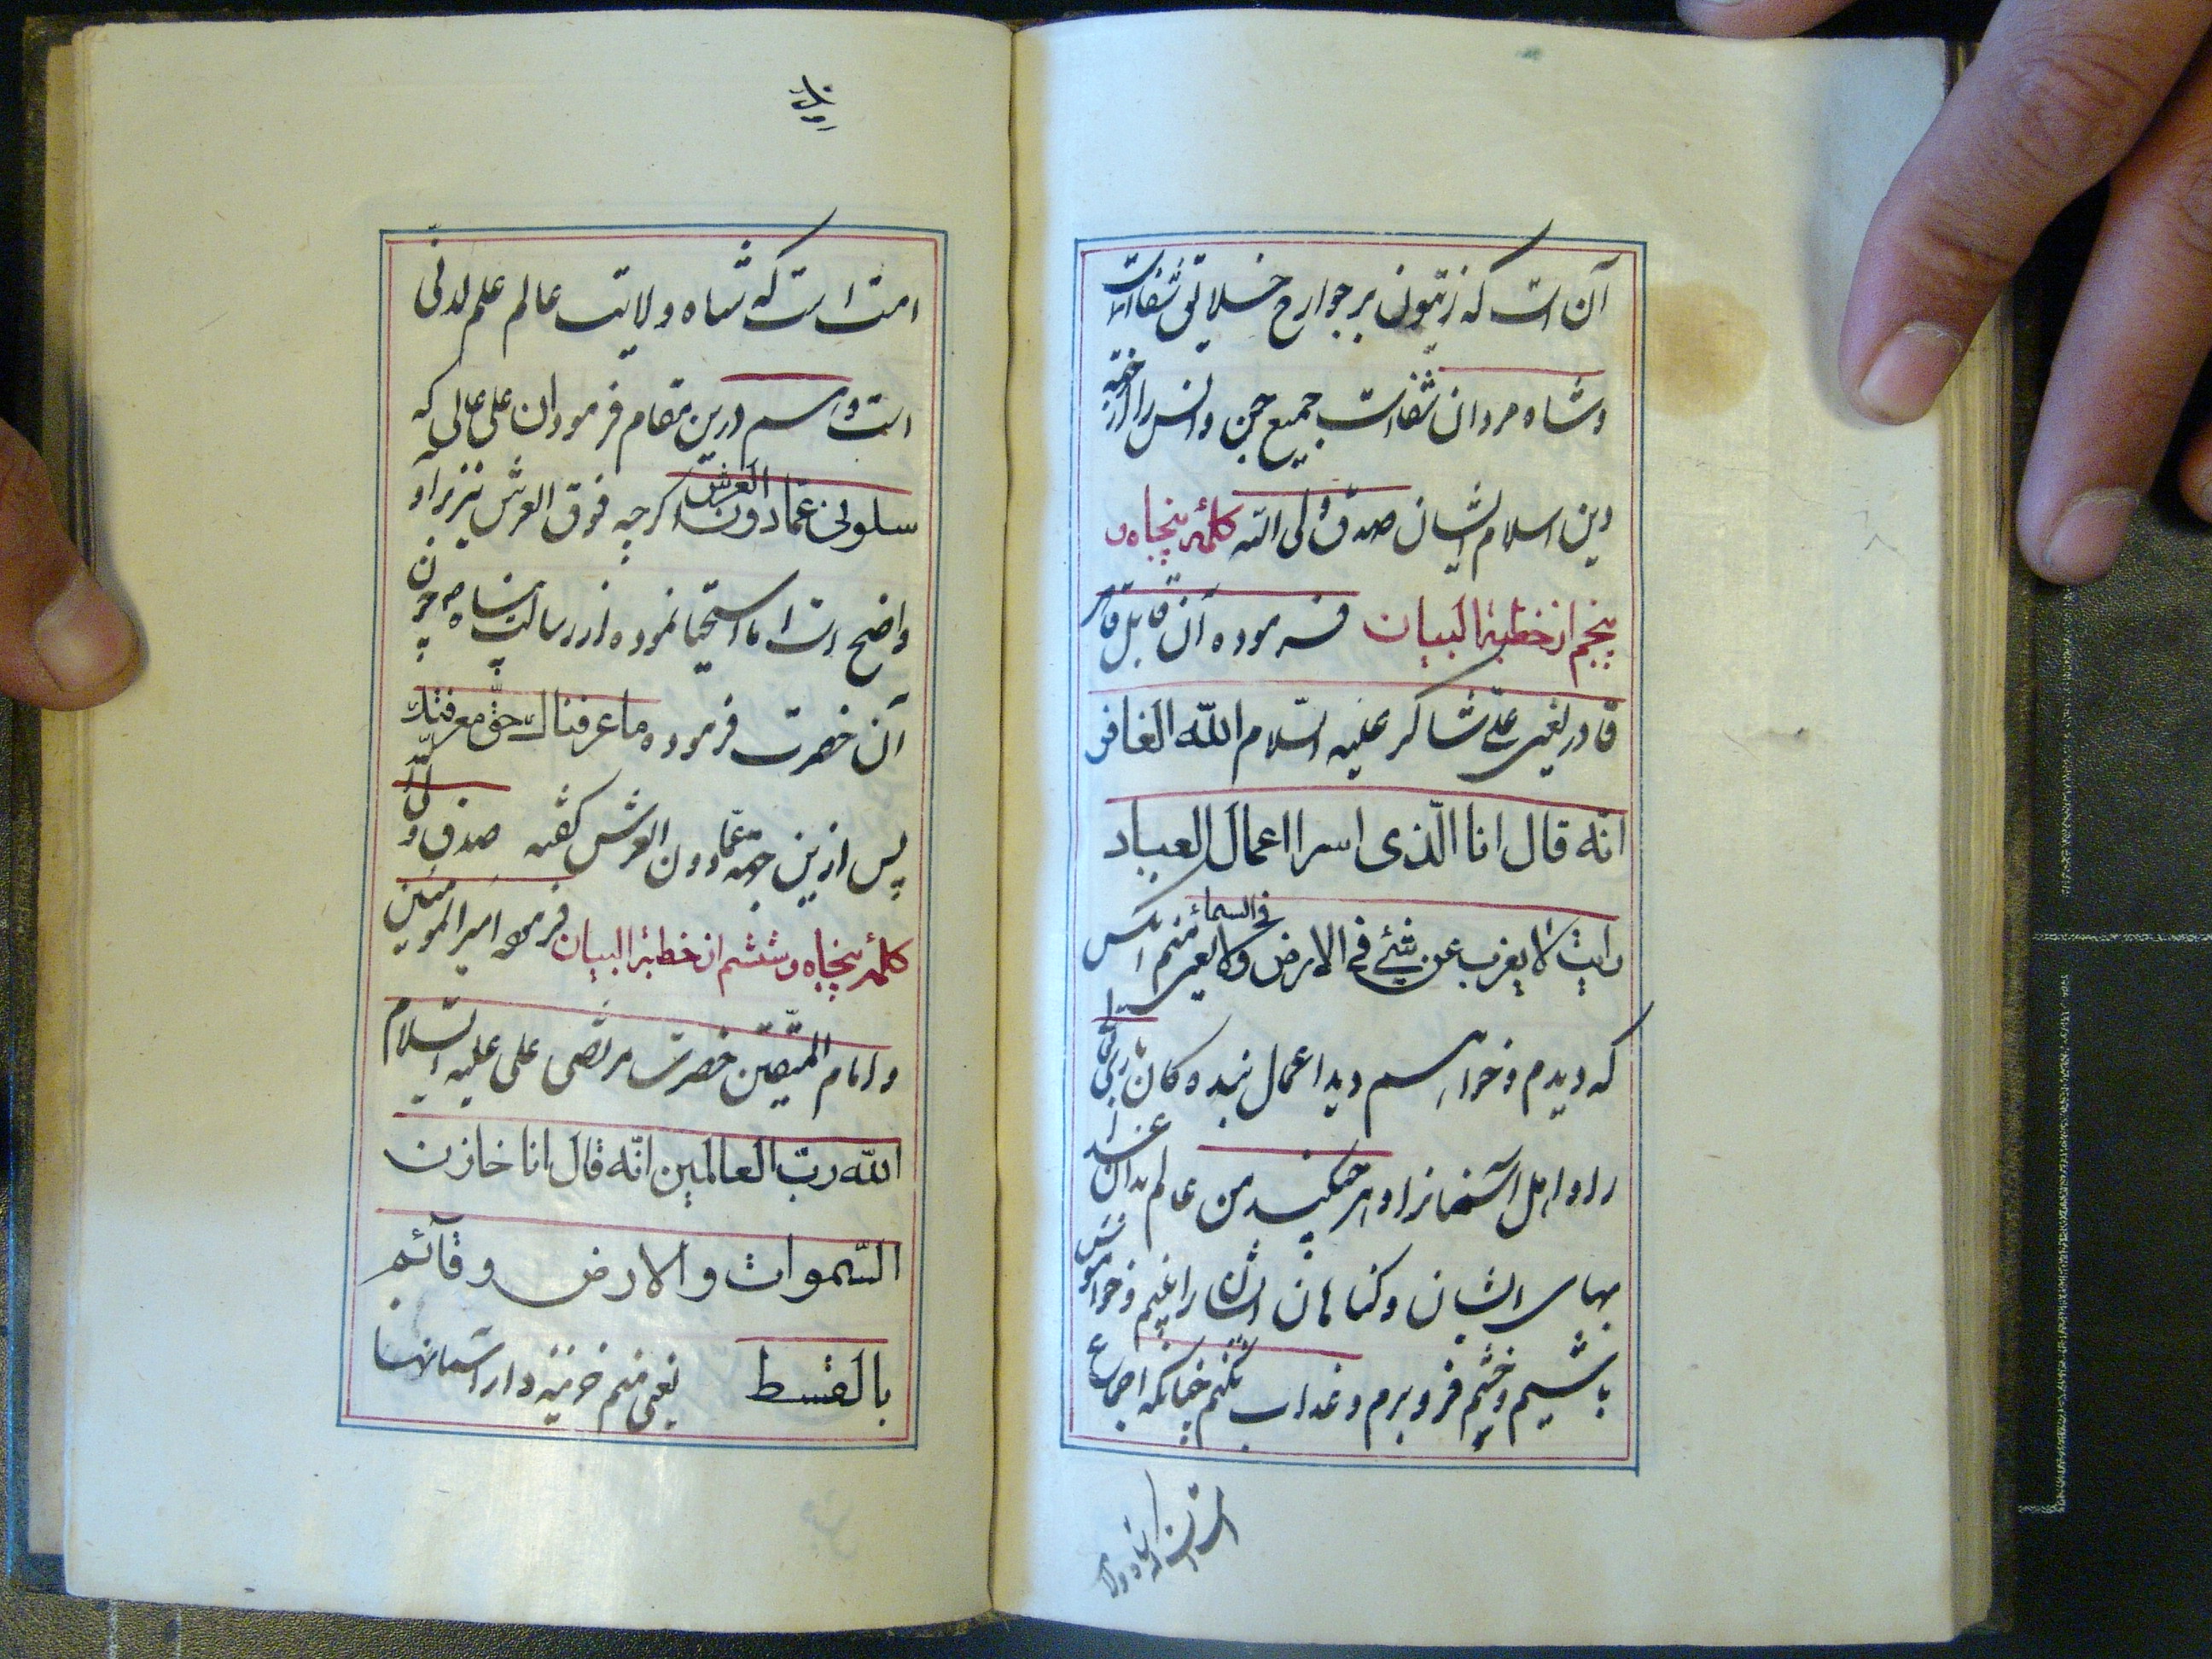 آن است که زیتونی بر جوارح خلایق شفاست
و شاه مردان شفاست جمیع جن و انس را از حقیه
دین اسلام ایشان صدق ولی الله کلمهٔ پنجاه و
پنجم از خطبة البیان فرموده آن قابل
قادر یعنی علی شاکر علیه السلام الله الغافر
انّه قال انا الّذی اسرا اعمال العباد
رایت لا یغرب عن شیئ فی الارض ولا فی السماء یعنی منم انکس
که دیدم و خواهم دید اعمال بنده کان
را و اهل آسمانرا و هر چکنید من عالم بدان
بهای ایشان و کناهان ایشان را بینم و خواموش
باشیم و خشم فرو برم و عذاب نکنم چنانکه اجماع
امت است که شاه ولایت عالم علم لدنّی
است و اسم درین مقام فرمود ان علی عالی که
سلونی عمّا دون العرش اکرچه فوق العرش نیز بر او
واضح است اما استحیا نموده از رسالت پناه ص چون
آن حضرت فرموده ما عرفناک حقّ معرفتک
پس ازین جهة عمّا دون العرش کفته صدق ولی الله
کلمهٔ پنجاه و ششم از خطبة البیان فرموده امیر المومنین
و امام المتّقین حضرت مرتضی علی علیه السّلام
الله ربّ العالمین انّه قال انا خازن
السّموات والارض و قآئم
بالقسط یعنی منم خزینه دار آسمانها